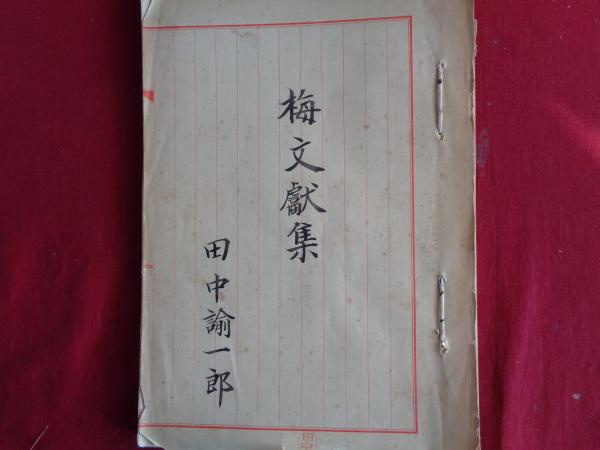 梅文獻集
田中諭一郎